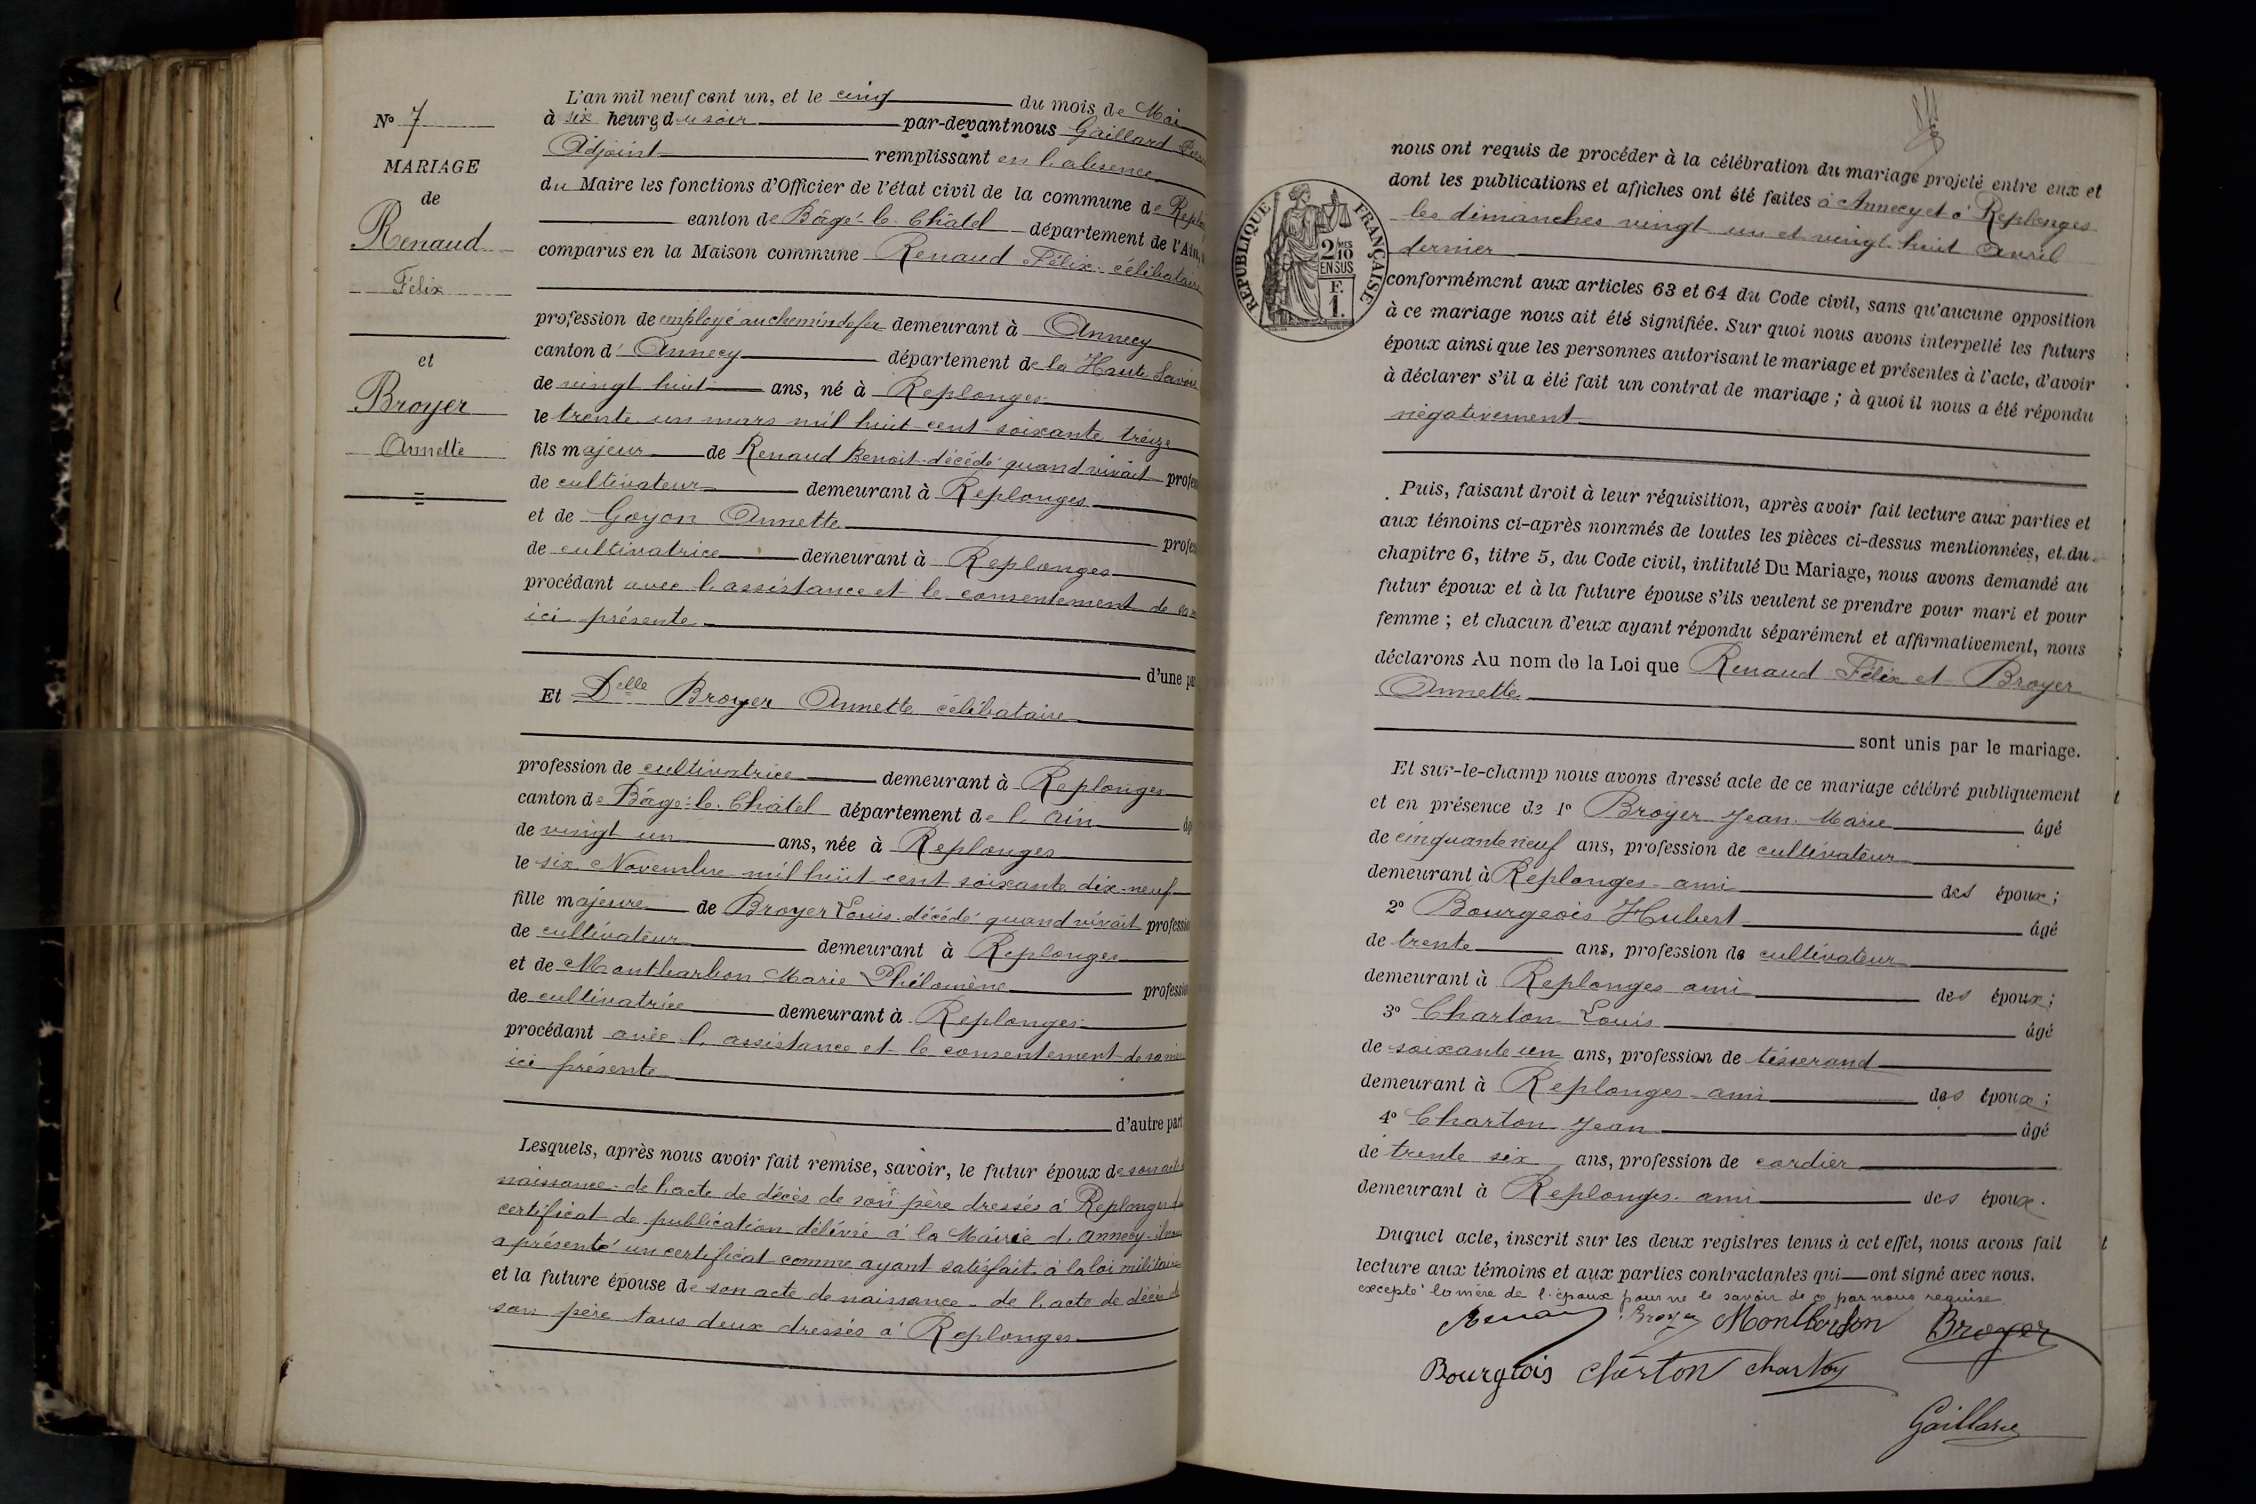 N° 7
MARIAGE
de
Renaud
Félix
et
Broyer
Annette
L'an mil neuf cent un, et le cinq du mois de Mai
à six heures du soir par-devant nous Gaillard
Adjoint remplissant en l'absence
du Maire les fonctions d'Officier de l'état civil de la commune de Replon
canton de Bâgé-le-Châtel département de l'Ain,
comparus en la Maison commune Renaud Félix célibataire
profession de employé au chemin de fer demeurant à Annecy
canton d' Annecy département de la Haute Savoie
de vingt huit ans, né à Replonges
le trente un mars mil huit cent soixante treize
fils majeur de Renaud Benoit décédé quand vivait profes
de cultivateur demeurant à Replonges
et de Goyon Annette profes
de cultivatrice demeurant à Replonges
procédant avec l'assistance et le consentement de sa
ici présente
d'une pa
Et Delle Broyer Annette célibataire
profession de cultivatrice demeurant à Replonges
canton de Bâgé-le-Châtel département de l'Ain âg
de vingt un ans, née à Replonges
le six Novembre mil huit cent soixante dix-neuf
fille majeure de Broyer Louis décédé quand vivait profession
de cultivateur demeurant à Replonges
et de Montbarbon Marie Philomène profession
de cultivatrice demeurant à Replonges
procédant avec l'assistance et le consentement de sa mère
ici présente
d'autre part
Lesquels, après nous avoir fait remise, savoir, le futur époux de son acte
naissance de l'acte de décès de son père dressés à Replonges
certificat de publication délivré à la Mairie d'Annecy il nous
a présenté un certificat comme ayant satisfait à la loi militaire
et la future épouse de son acte de naissance de l'acte de décès de
son père tous deux dressés à Replonges
RÉPUBLIQUE FRANÇAISE
2 MES
10
EN SUS
F.
1.
nous ont requis de procéder à la célébration du mariage projeté entre eux et
dont les publications et affiches ont été faites à Annecy et à Replonges
les dimanches vingt un et vingt huit Avril
dernier
conformément aux articles 63 et 64 du Code civil, sans qu'aucune opposition
à ce mariage nous ait été signifiée. Sur quoi nous avons interpellé les futurs
époux ainsi que les personnes autorisant le mariage et présentes à l'acte, d'avoir
à déclarer s'il a été fait un contrat de mariage ; à quoi il nous a été répondu
négativement
Puis, faisant droit à leur réquisition, après avoir fait lecture aux parties et
aux témoins ci-après nommés de toutes les pièces ci-dessus mentionnées, et du
chapitre 6, titre 5, du Code civil, intitulé Du Mariage, nous avons demandé au
futur époux et à la future épouse s'ils veulent se prendre pour mari et pour
femme ; et chacun d'eux ayant répondu séparément et affirmativement, nous
déclarons Au nom de la Loi que Renaud Félix et Broyer
Annette
sont unis par le mariage.
Et sur-le-champ nous avons dressé acte de ce mariage célébré publiquement
et en présence de 1° Broyer Jean Marie âgé
de cinquante neuf ans, profession de cultivateur
demeurant à Replonges ami des époux ;
2° Bourgeois Hubert âgé
de trente ans, profession de cultivateur
demeurant à Replonges ami des époux ;
3° Charton Louis âgé
de soixante un ans, profession de tisserand
demeurant à Replonges ami des époux ;
4° Charton Jean âgé
de trente six ans, profession de cordier
demeurant à Replonges ami des époux.
Duquel acte, inscrit sur les deux registres tenus à cet effet, nous avons fait
lecture aux témoins et aux parties contractantes qui ont signé avec nous.
excepté la mère de l'époux pour ne le savoir de ce par nous requise
Renaud Broyer Montbarbon Broyer
Bourgeois Charton Charton
Gaillard